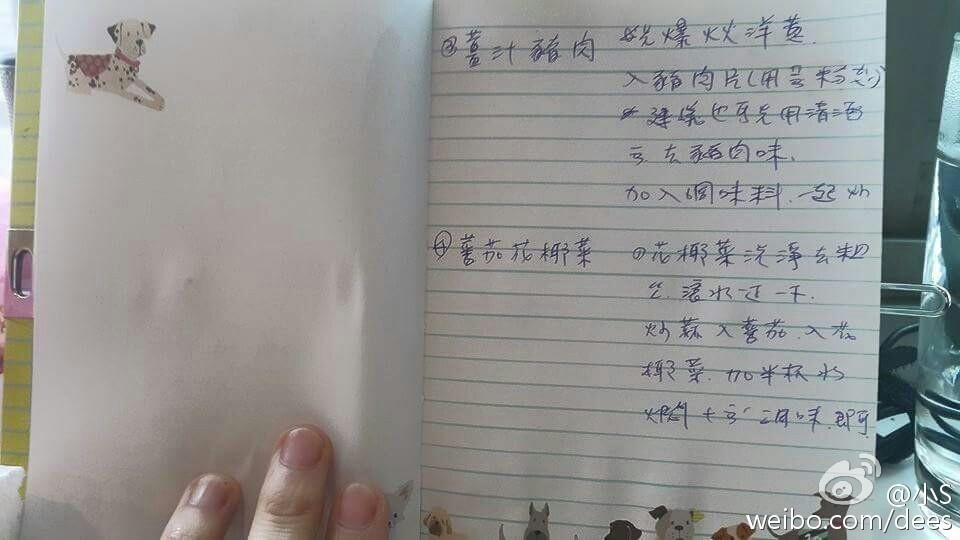 ③薑汁豬肉 先爆炒洋蔥.
入豬肉片(用
* 建議也可先用清酒
去豬肉味.
加入調味料.一起炒
④蕃茄花椰菜 ①花椰菜洗淨去粗
滾水過一下.
炒蒜入蕃茄.入花
椰菜.加半杯水
燜+ 調味.即可
@小S
weibo.com/dees